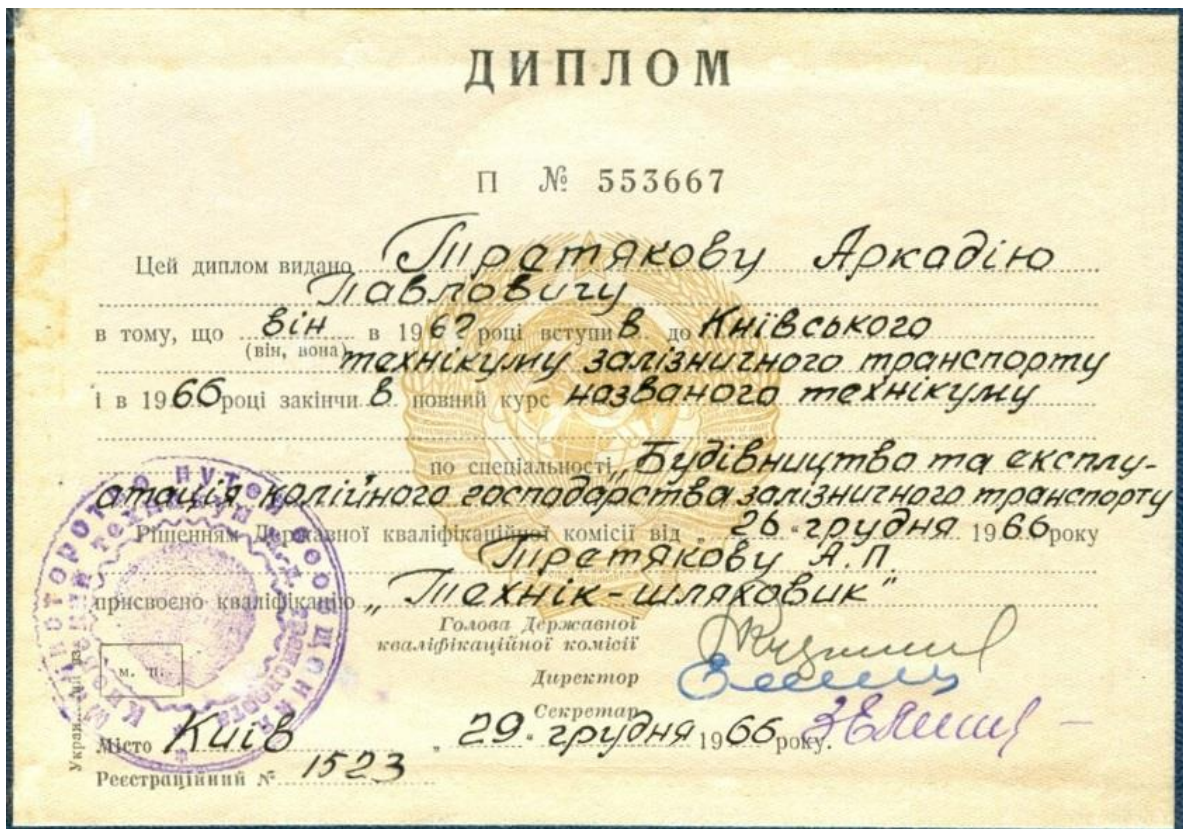 ДИПЛОМ
П № 553667
Цей диплом видано Третякову Аркадію
Павловичу
в тому, що він в 1962 році вступив до Київського
(він, вона)
технікуму залізничного транспорту
і в 1966 році закінчив повний курс названого технікуму
по спеціальності „Будівництво та експлу-
атація колійного господарства залізничного транспорту
Рішенням Державної кваліфікаційної комісії від „26" грудня 1966 року
Третякову А.П.
присвоєно кваліфікацію „Технік-шляховик"
Голова Державної
кваліфікаційної комісії
Директор
Секретар
м. п.
Місто Київ „29" грудня 1966 року.
Реєстраційний № 1523
Укран.